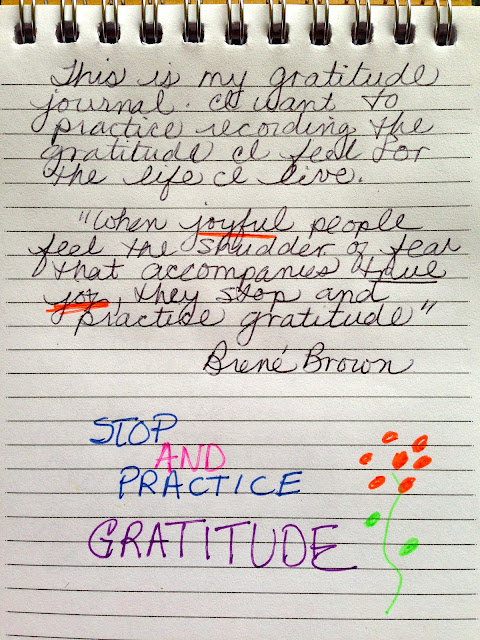 This is my gratitude
journal. I want to
practice recording the
gratitude I feel for
the life I live.
"When joyful people
feel the shudder of fear
that accompanies true
joy, they stop and
practice gratitude"
Brené Brown
STOP
AND
PRACTICE
GRATITUDE